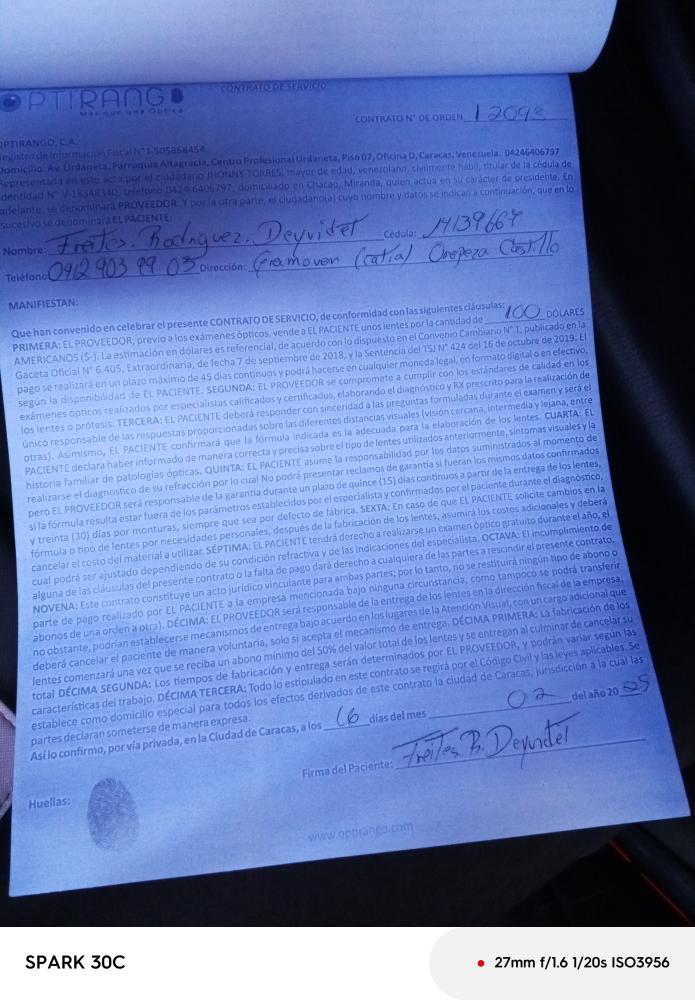 OPTIRANGO
Más que una Óptica
CONTRATO DE SERVICIO
CONTRATO N° DE ORDEN 12093
OPTIRANGO, C.A.
Registro de Información Fiscal N° J-505868454
Domicilio: Av. Urdaneta, Parroquia Altagracia, Centro Profesional Urdaneta, Piso 07, Oficina D, Caracas, Venezuela. 04246406797
Representada en este acto por el ciudadano JHONNY TORRES, mayor de edad, venezolano, civilmente hábil, titular de la cédula de
identidad N° V-18348340, teléfono 0424-6406797, domiciliado en Chacao, Miranda, quien actua en su carácter de presidente. En
adelante, se denominará PROVEEDOR. Y por la otra parte, el ciudadano(a) cuyo nombre y datos se indican a continuación, que en lo
sucesivo se denominará EL PACIENTE:
Nombre: Freites. Rodriguez. Deyvidet Cédula: 14139667
Teléfono 0412 903 99 03 Dirección: Gramoven (catia) Oropeza Castillo
MANIFIESTAN:
Que han convenido en celebrar el presente CONTRATO DE SERVICIO, de conformidad con las siguientes cláusulas:
PRIMERA: EL PROVEEDOR, previo a los exámenes ópticos, vende a EL PACIENTE unos lentes por la cantidad de 100 DÓLARES
AMERICANOS ($-). La estimación en dólares es referencial, de acuerdo con lo dispuesto en el Convenio Cambiario N° 1, publicado en la
Gaceta Oficial N° 6.405, Extraordinaria, de fecha 7 de septiembre de 2018, y la Sentencia del TSJ N° 424 del 16 de octubre de 2019. El
pago se realizará en un plazo máximo de 45 días continuos y podrá hacerse en cualquier moneda legal, en formato digital o en efectivo,
según la disponibilidad de EL PACIENTE. SEGUNDA: EL PROVEEDOR se compromete a cumplir con los estándares de calidad en los
exámenes ópticos realizados por especialistas calificados y certificados, elaborando el diagnóstico y RX prescrito para la realización de
los lentes o prótesis. TERCERA: EL PACIENTE deberá responder con sinceridad a las preguntas formuladas durante el examen y será el
único responsable de las respuestas proporcionadas sobre las diferentes distancias visuales (visión cercana, intermedia y lejana, entre
otras). Asimismo, EL PACIENTE confirmará que la fórmula indicada es la adecuada para la elaboración de los lentes. CUARTA: EL
PACIENTE declara haber informado de manera correcta y precisa sobre el tipo de lentes utilizados anteriormente, síntomas visuales y la
historia familiar de patologías ópticas. QUINTA: EL PACIENTE asume la responsabilidad por los datos suministrados al momento de
realizarse el diagnostico de su refracción por lo cual No podrá presentar reclamos de garantía si fueran los mismos datos confirmados
pero EL PROVEEDOR será responsable de la garantía durante un plazo de quince (15) días continuos a partir de la entrega de los lentes,
si la fórmula resulta estar fuera de los parámetros establecidos por el especialista y confirmados por el paciente durante el diagnóstico,
y treinta (30) días por monturas, siempre que sea por defecto de fábrica. SEXTA: En caso de que EL PACIENTE solicite cambios en la
fórmula o tipo de lentes por necesidades personales, después de la fabricación de los lentes, asumirá los costos adicionales y deberá
cancelar el costo del material a utilizar. SÉPTIMA: EL PACIENTE tendrá derecho a realizarse un examen óptico gratuito durante el año, el
cual podrá ser ajustado dependiendo de su condición refractiva y de las indicaciones del especialista. OCTAVA: El incumplimiento de
alguna de las cláusulas del presente contrato o la falta de pago dará derecho a cualquiera de las partes a rescindir el presente contrato.
NOVENA: Este contrato constituye un acto jurídico vinculante para ambas partes; por lo tanto, no se restituirá ningún tipo de abono o
parte de pago realizado por EL PACIENTE a la empresa mencionada bajo ninguna circunstancia, como tampoco se podrá transferir
abonos de una orden a otra). DÉCIMA: EL PROVEEDOR será responsable de la entrega de los lentes en la dirección fiscal de la empresa,
no obstante, podrían establecerse mecanismos de entrega bajo acuerdo en los lugares de la Atención Visual, con un cargo adicional que
deberá cancelar el paciente de manera voluntaria, solo si acepta el mecanismo de entrega. DÉCIMA PRIMERA: La fabricación de los
lentes comenzará una vez que se reciba un abono mínimo del 50% del valor total de los lentes y se entregan al culminar de cancelar su
total DÉCIMA SEGUNDA: Los tiempos de fabricación y entrega serán determinados por EL PROVEEDOR, y podrán variar según las
características del trabajo. DÉCIMA TERCERA: Todo lo estipulado en este contrato se regirá por el Código Civil y las leyes aplicables. Se
establece como domicilio especial para todos los efectos derivados de este contrato la ciudad de Caracas, jurisdicción a la cual las
partes declaran someterse de manera expresa.
Así lo confirmo, por vía privada, en la Ciudad de Caracas, a los 16 días del mes 02 del año 2025
Firma del Paciente: Freites. R. Deyvidet
Huellas:
www.optirango.com
SPARK 30C
27mm f/1.6 1/20s ISO3956